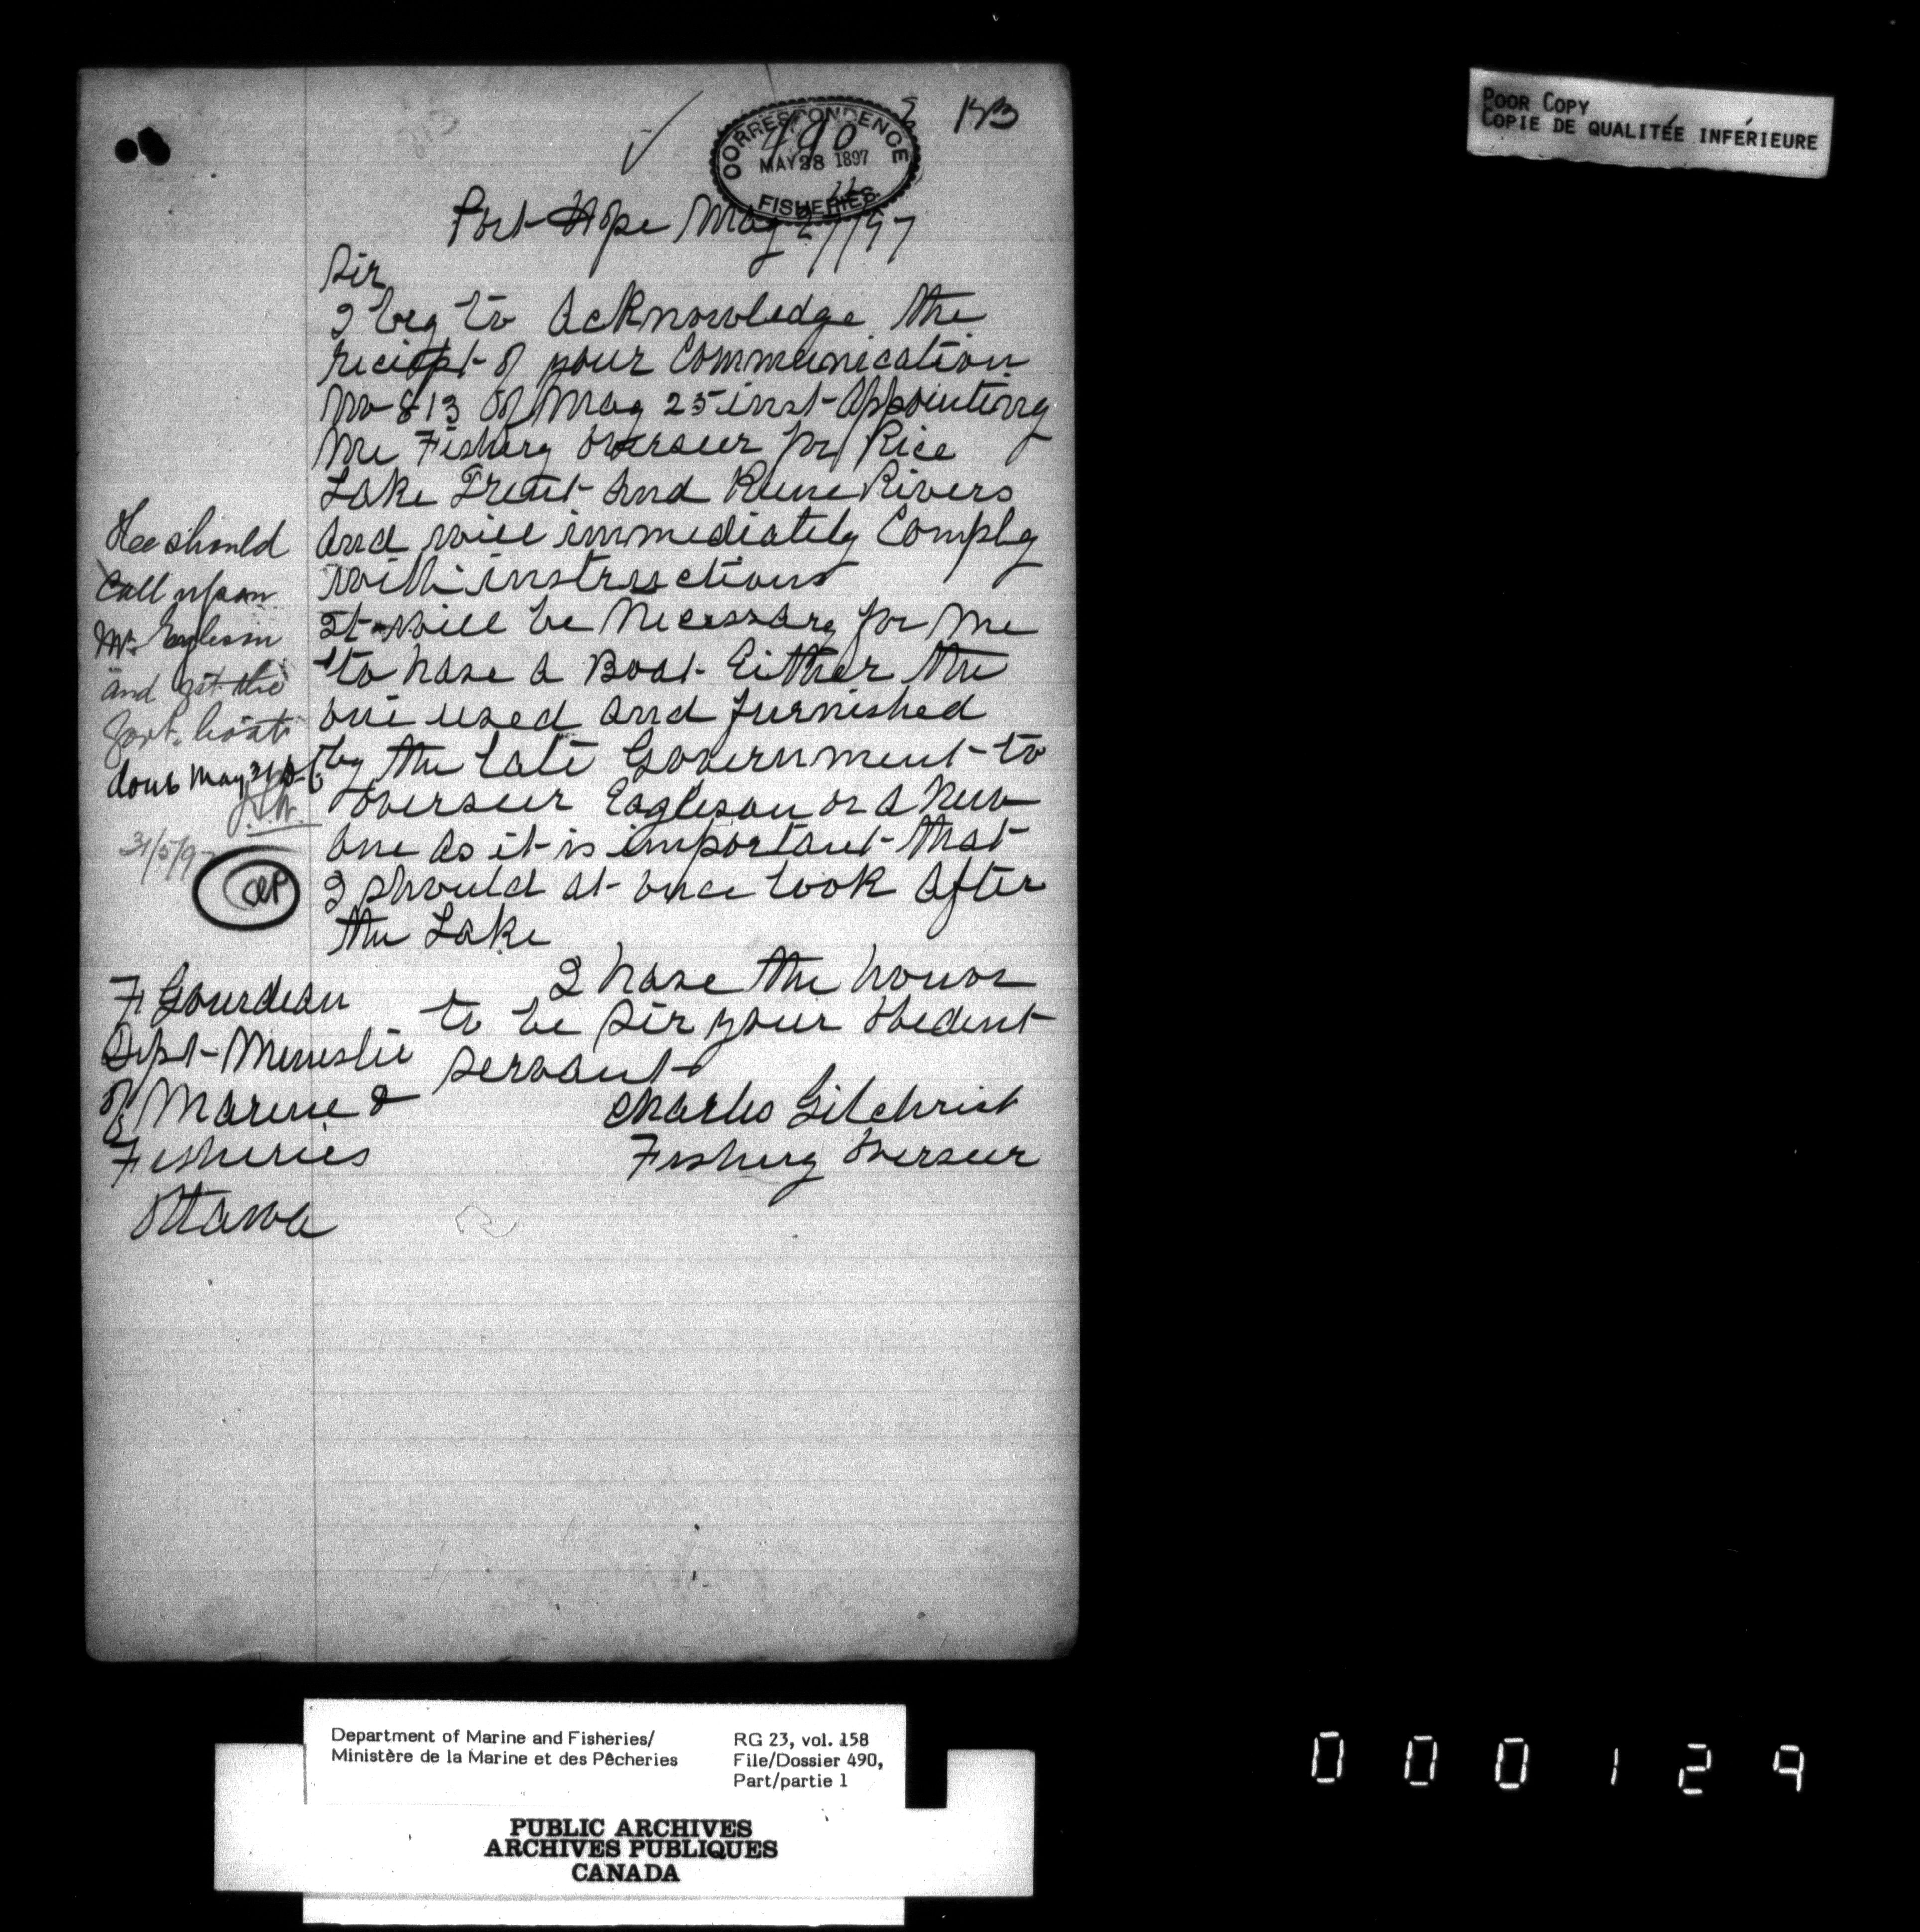 POOR COPY
COPIE DE QUALITÉE INFÉRIEURE
813
CORRESPONDENCE
490
MAY 28 1897
FISHERIES
Port Hope May 27/97
Sir
I beg to acknowledge the
reciept of your Communication
No 813 of May 25 inst appointing
me Fishery overseer for Rice
Lake Trent and Rivers
and will immediately Comply
with instructions
It will be Necessary for me
to have a Boat Either the
one used and furnished
by the Late Government to
overseer Eagleson or a New
one as it is important that
I should at once Look after
the Lake
I have the honor
to be Sir your obedent
servant
Charles Gilchrist
Fishery Overseer
He should
call upon
Mr Eagleson
and get the
govt. boat
done May 31
31/5/97
F Gourdeau
Dept Minister
of Marine &
Fisheries
Ottawa
Department of Marine and Fisheries/
Ministère de la Marine et des Pêcheries
RG 23, vol. 158
File/Dossier 490,
Part/partie 1
PUBLIC ARCHIVES
ARCHIVES PUBLIQUES
CANADA
000129